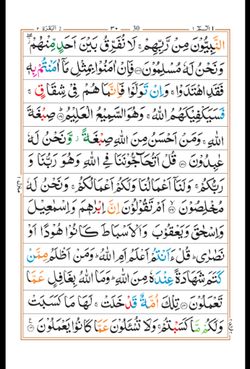 النَّبِيُّوْنَ مِنْ رَّبِّهِمْ ۚ لَا نُفَرِّقُ بَيْنَ اَحَدٍ مِّنْهُمْ ۖ
وَنَحْنُ لَهٗ مُسْلِمُوْنَ ۝ فَاِنْ اٰمَنُوْا بِمِثْلِ مَاۤ اٰمَنْتُمْ بِهٖ
فَقَدِ اهْتَدَوْا ۚ وَاِنْ تَوَلَّوْا فَاِنَّمَا هُمْ فِيْ شِقَاقٍ ۚ
فَسَيَكْفِيْكَهُمُ اللّٰهُ ۚ وَهُوَ السَّمِيْعُ الْعَلِيْمُ ۝ صِبْغَةَ
اللّٰهِ ۚ وَمَنْ اَحْسَنُ مِنَ اللّٰهِ صِبْغَةً ۫ وَّنَحْنُ لَهٗ
عٰبِدُوْنَ ۝ قُلْ اَتُحَآجُّوْنَنَا فِي اللّٰهِ وَهُوَ رَبُّنَا وَ
رَبُّكُمْ ۚ وَلَنَاۤ اَعْمَالُنَا وَلَكُمْ اَعْمَالُكُمْ ۚ وَنَحْنُ لَهٗ
مُخْلِصُوْنَ ۝ اَمْ تَقُوْلُوْنَ اِنَّ اِبْرٰهٖمَ وَاِسْمٰعِيْلَ
وَاِسْحٰقَ وَيَعْقُوْبَ وَالْاَسْبَاطَ كَانُوْا هُوْدًا اَوْ
نَصٰرٰى ؕ قُلْ ءَاَنْتُمْ اَعْلَمُ اَمِ اللّٰهُ ؕ وَمَنْ اَظْلَمُ مِمَّنْ
كَتَمَ شَهَادَةً عِنْدَهٗ مِنَ اللّٰهِ ؕ وَمَا اللّٰهُ بِغَافِلٍ عَمَّا
تَعْمَلُوْنَ ۝ تِلْكَ اُمَّةٌ قَدْ خَلَتْ ۚ لَهَا مَا كَسَبَتْ
وَلَكُمْ مَّا كَسَبْتُمْ ۚ وَلَا تُسْـَٔلُوْنَ عَمَّا كَانُوْا يَعْمَلُوْنَ ۝